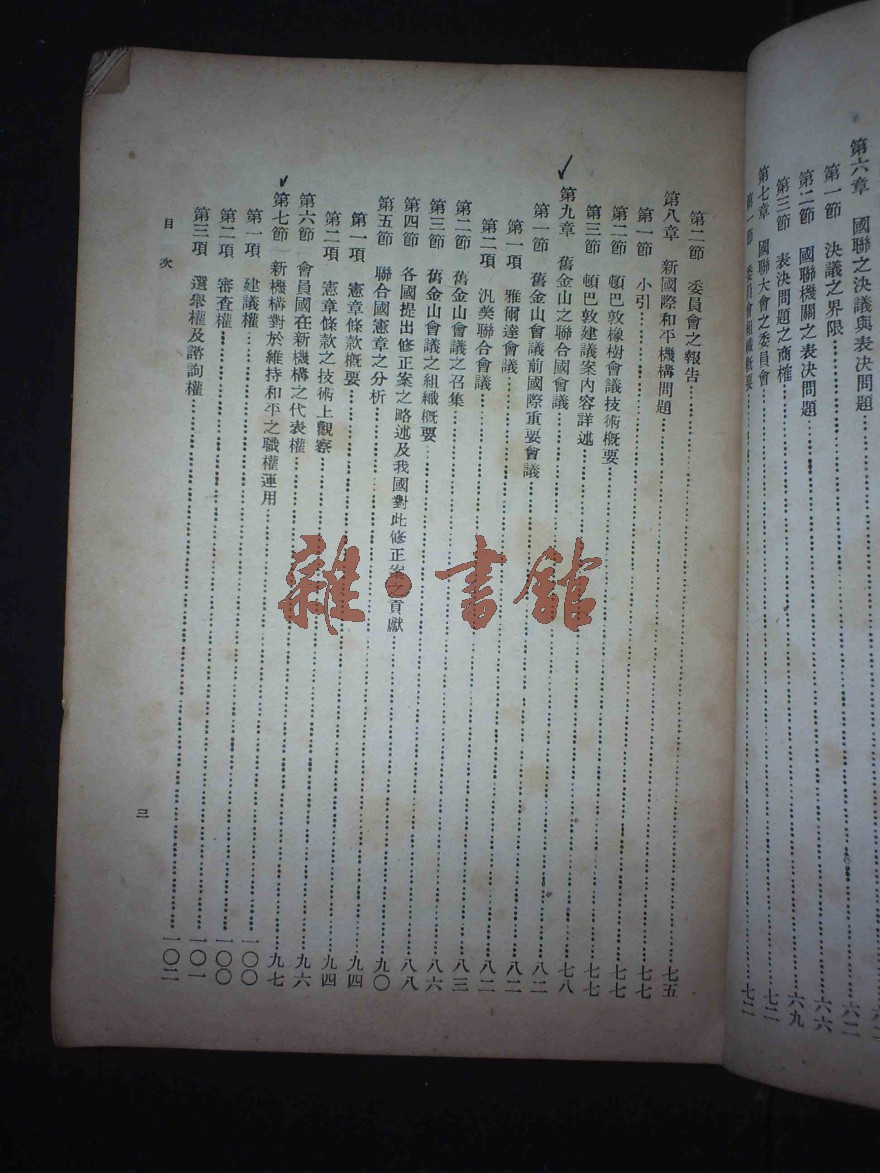 第六章 國聯之決議與表決問題
第一節 決議之界限……六二
第二節 國聯機關之表決問題……六六
第三節 表決問題之商榷……六九
第七章 國聯大會之委員會……七二
第一節 委員會組織概要……七二
第二節 委員會之報告……七五
第八章 新國際和平機構問題……七七
第一節 小引……七七
第二節 頓巴敦橡樹會議技術概要……七七
第三節 頓巴敦建議案內容詳述……七八
第九章 舊金山之聯合國會議……八二
第一節 舊金山會議前國際重要會議……八二
第一項 雅爾達會議……八二
第二項 汎美聯合會議……八三
第二節 舊金山會議之召集……八六
第三節 舊金山會議之組織概要……八八
第四節 各國提出修正案之略述及我國對此修正案之貢獻……九〇
第五節 聯合國憲章之分析……九四
第一項 憲章條款概要……九四
第二項 憲章條款之技術上觀察……九六
第六節 會員國在新機構之代表權……九七
第七節 新機構對於維持和平之職權運用……一〇〇
第一項 建議權……一〇〇
第二項 審查權……一〇一
第三項 選舉權及諮詢權……一〇二
目次
三
雜·書館